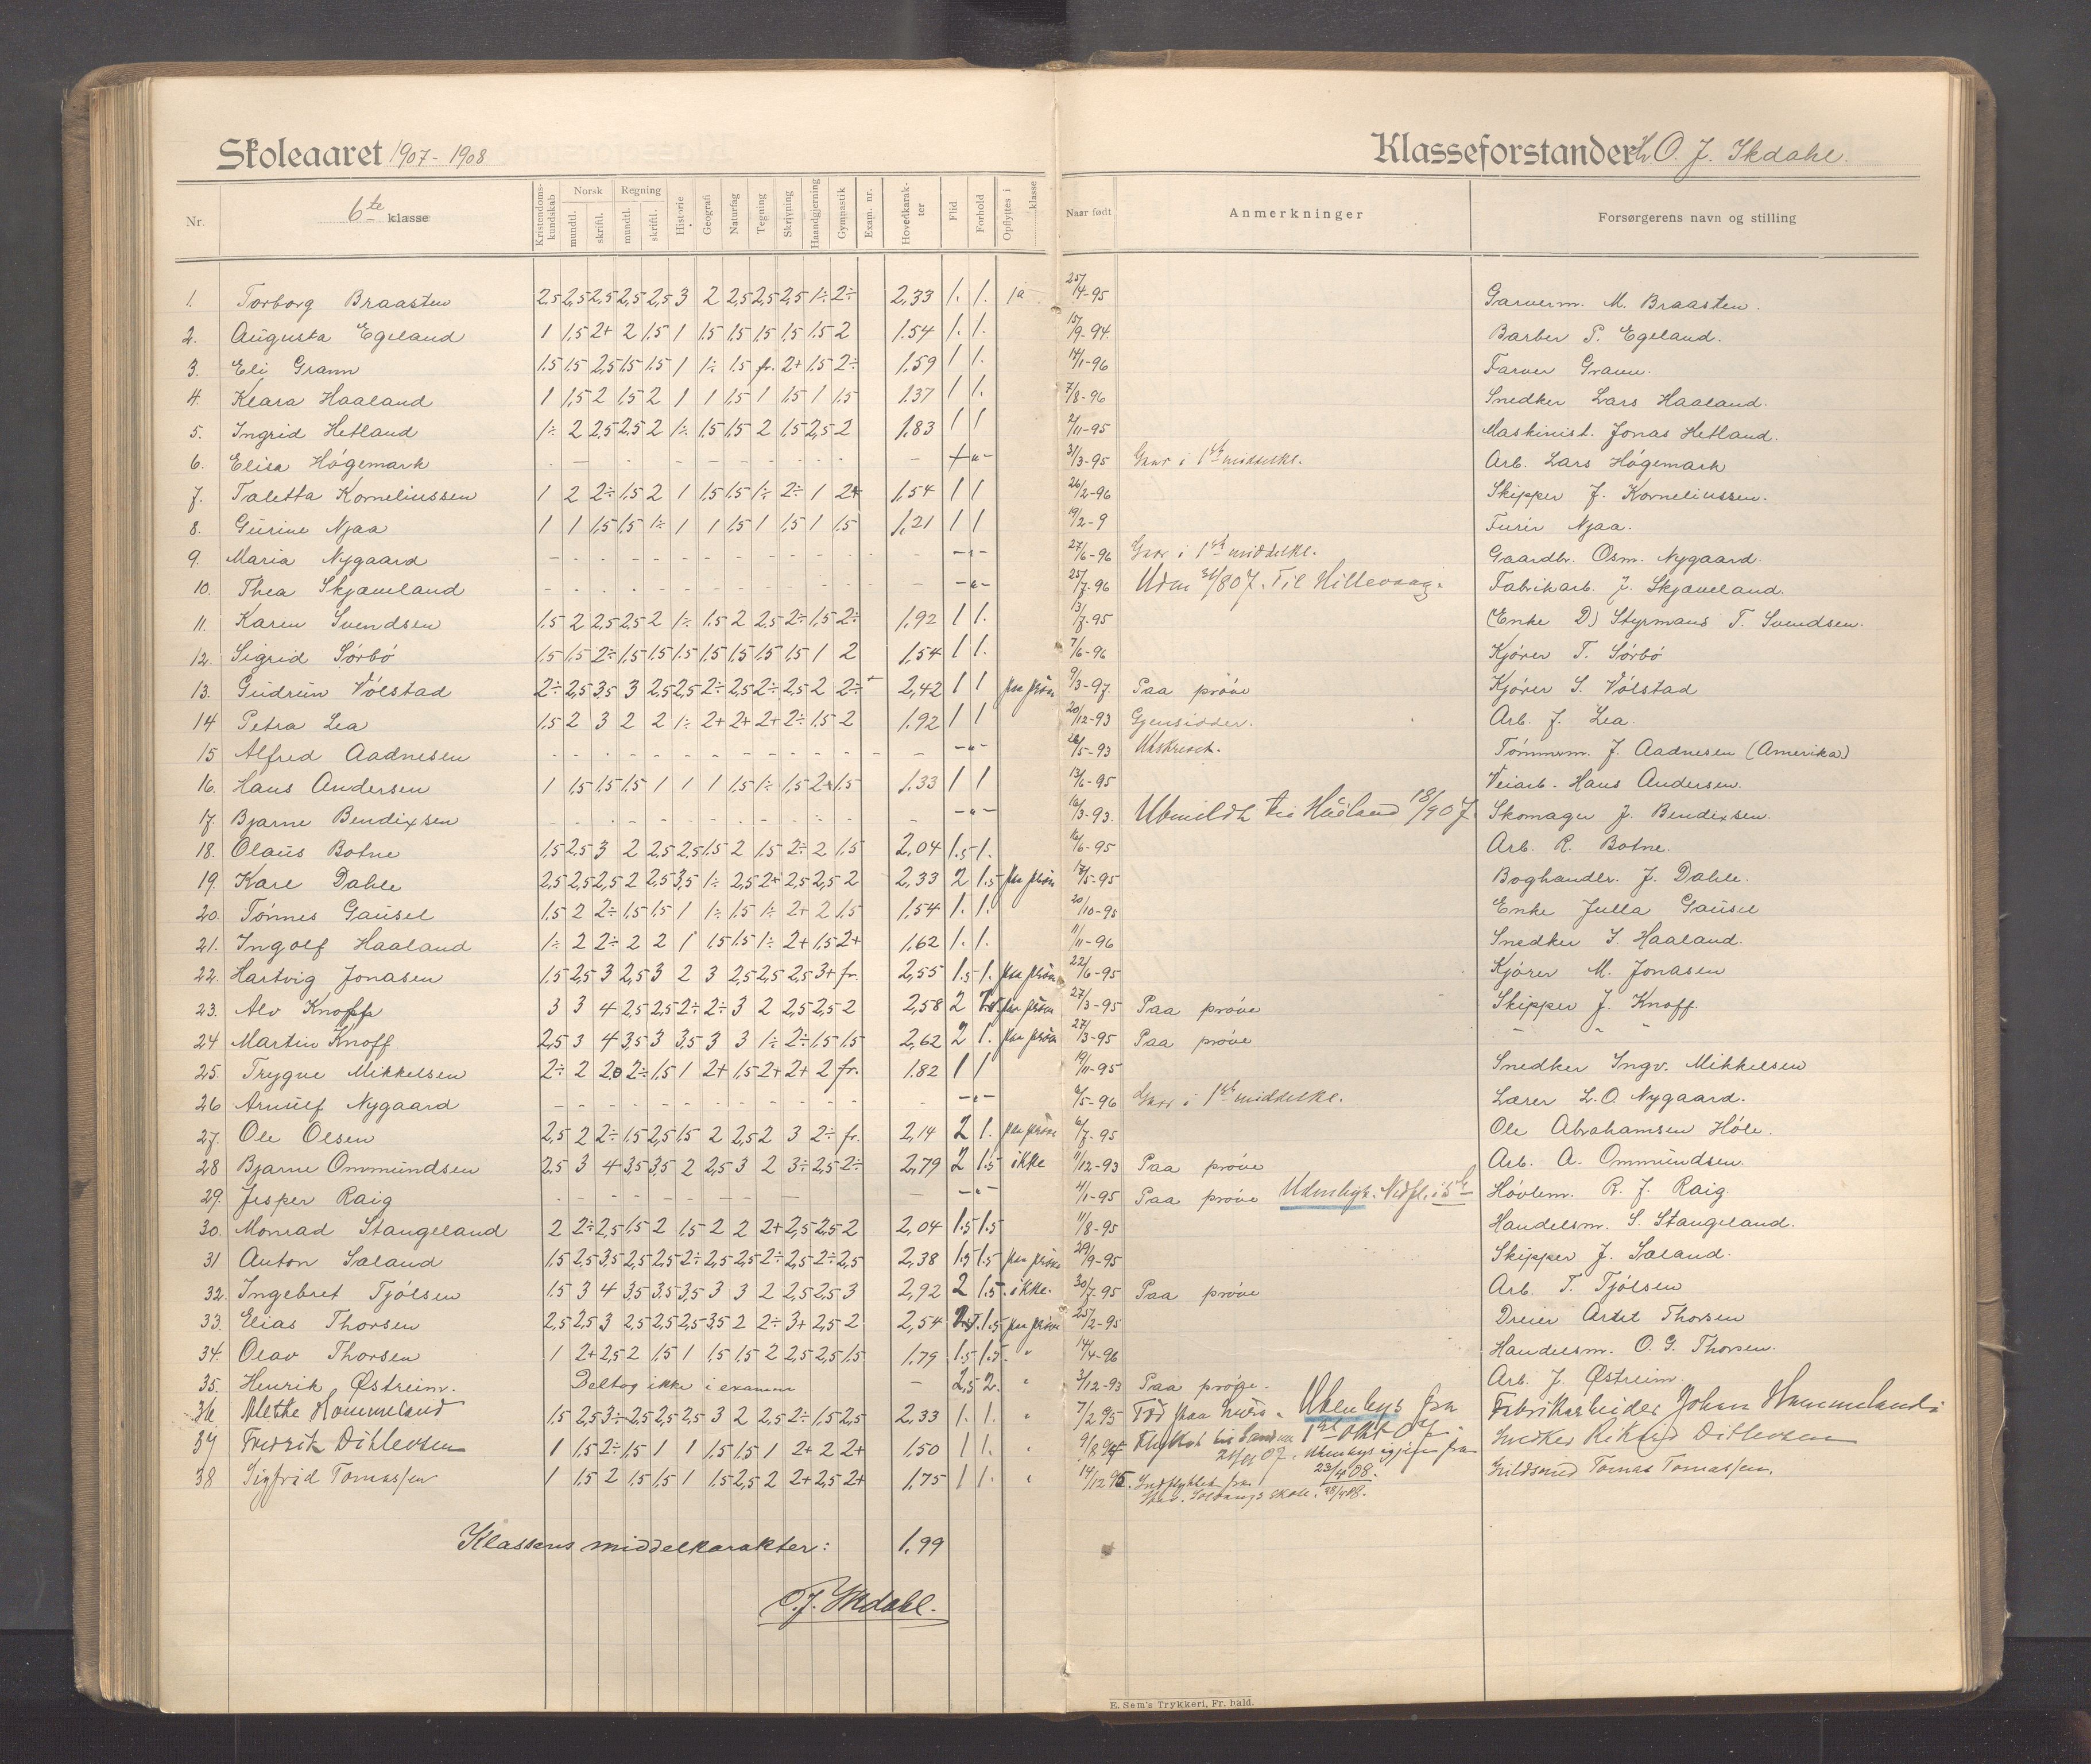 Skoleaaret 1907-1908
Klasseforstander O. J. Skdahl.
Nr. 6te klasse Kristendomskundskab Norsk mundtl. skriftl. Regning mundtl. skriftl. Historie Geografi Naturfag Tegning Skrivning Haandgjerning Gymnastik Exam. nr. Hovedkarakter Flid Forhold Opflyttes i klasse Naar født Anmerkninger Forsørgerens navn og stilling
1. Torborg Braasten 2,5 2,5 2,5 2,5 2,5 3 2 2,5 2,5 2,5 1÷ 2÷ 2,33 1. 1. 1a 25/4-95 Garverm. M. Braasten.
2. Augusta Egeland 1 1,5 2+ 2 1,5 1 1,5 1,5 1,5 1,5 1,5 2 1.54 1. 1. 15/9-94. Barber P. Egeland.
3. Eli Grann 1,5 1,5 2,5 1,5 1,5 1 1÷ 1,5 fr. 2+ 1,5 2÷ 1,59 1 1. 14/1-96 Farver Grann.
4. Klara Haaland 1 1,5 2 1,5 2 1 1 1,5 1 1,5 1 1,5 1.37 1 1. 7/8-96 Snedker Lars Haaland.
5. Ingrid Hetland 1÷ 2 2,5 2,5 2 1÷ 1,5 1,5 2 1,5 2,5 2 1,83 1 1 2/11-95 Maskinist. Jonas Hetland.
6. Elisa Högemark 31/3-95 Gaar i 1ste middelkl. Arb. Lars Högemark
7. Taletta Korneliussen 1 2 2÷ 1,5 2 1 1,5 1,5 1÷ 2÷ 1 2+ 1,54 1 1 26/2-96 Skipper J. Korneliussen.
8. Gurine Njaa 1 1 1,5 1,5 1÷ 1 1 1,5 1 1,5 1 1,5 1,21 1 1 19/2-9 Furir Njaa.
9. Maria Nygaard 27/6-96 Gaar i 1ste middelkl. Gaardbr. Osm. Nygaard.
10. Thea Skjæveland 25/7-96 Udm 31/8 07. Til Hillevaag. Fabrikarb. J. Skjæveland.
11. Karen Svendsen 1,5 2 2,5 2,5 2 1÷ 1,5 2 2,5 2÷ 1,5 2÷ 1,92 1 1. 13/7-95 (Enke D) Styrmans T. Svendsen.
12. Sigrid Sörbö 1,5 1,5 2÷ 1,5 1,5 1,5 1,5 1,5 1,5 1,5 1 2 1,54 1 1. 7/6-96 Kjörer T. Sörbö
13. Gudrun Völstad 2÷ 2,5 3,5 3 2,5 2,5 2÷ 2,5 2÷ 2,5 2 2÷ 2,42 1 1 paa pröve 9/3-97 Paa pröve Kjörer S. Völstad
14 Petra Lea 1,5 2 3 2 2 1÷ 2+ 2+ 2+ 2÷ 1,5 2 1.92 1 1 20/12-93 Gjensidder. Arb. J. Lea.
15 Alfred Aadnesen /5-93 Udskrevet. Tömmerm. J. Aadnesen (Amerika)
16. Hans Andersen 1 1,5 1,5 1,5 1 1 1 1,5 1÷ 1,5 2+ 1,5 1.33 1 1 13/6-95 Veiarb. Hans Andersen.
17. Bjarne Bendixsen 16/3-93. Udmeldt til Haaland 18/9 07. Skomager J. Bendixsen.
18. Olaus Botne 1,5 2,5 3 2 2,5 2,5 1,5 2 1,5 2÷ 2 1,5 2,04 1.5 1. 16/6-95 Arb. R. Botne.
19. Kare Dahle 2,5 2,5 2,5 2 2,5 3,5 1÷ 2,5 2+ 2,5 2,5 2 2,33 2 1.5 paa pröve 17/5-95 Boghandler. J. Dahle.
20. Tönnes Gausel 1,5 2 2÷ 1,5 1,5 1 1÷ 1,5 1÷ 2+ 2 1,5 1,54 1. 1. 20/10-95 Enke Julla Gausel
21. Ingolf Haaland 1÷ 2 2÷ 2 2 1 1,5 1,5 1÷ 2+ 1,5 2+ 1.62 1. 1. 11/11-96 Snedker S. Haaland.
22. Hartvig Jonasen 1,5 2,5 3 2,5 3 2 3 2,5 2,5 2,5 3+ fr. 2,55 1.5 1. paa pröve 22/6-95 Kjörer M. Jonasen
23. Alv Knoff 3 3 4 2,5 2,5 2÷ 2÷ 3 2 2,5 2,5 2 2,58 2 paa pröve 27/3-95 Paa pröve Skipper J. Knoff.
24 Martin Knoff 2,5 3 4 3,5 3 3,5 3 3 1÷ 2÷ 1,5 1,5 2,62 2 1. paa pröve 27/3-95 Paa pröve " " "
25. Trygve Mikkelsen 2÷ 2 2 2÷ 1,5 1 2+ 1,5 2+ 2+ 2 fr. 1.82 1 1 19/11-95 Snedker Ingv. Mikkelsen
26 Arnulf Nygaard 3/5-96 Gaar i 1ste middelkl. Lærer L. O. Nygaard.
27. Ole Olsen 2,5 2 2÷ 1,5 2,5 1,5 2 2,5 2 3 2÷ fr. 2,14 2 1. paa pröve 6/7-95 Ole Abrahamsen Höle.
28 Bjarne Ommundsen 2,5 3 4 3,5 3,5 2 2,5 3 2 3÷ 2,5 2÷ 2,79 2 1.5 ikke 11/12-93 Paa pröve Arb. A. Ommundsen.
29. Jesper Raig 4/1-95 Paa pröve Udenbys. Nedfl. i 5te Hövlem. R. J. Raig.
30. Monrad Stangeland 2 2÷ 2,5 1,5 2 1,5 2 2 2+ 2,5 2,5 2 2,04 1.5 1.5 11/8-95 Handelsm. S. Stangeland.
31 Anton Saland 1,5 2,5 3,5 2,5 2,5 2÷ 2,5 2,5 2÷ 2,5 2÷ 2,5 2,38 1.5 1.5 paa pröve 29/9-95 Skipper J. Saland.
32. Ingebret Tjölsen 1,5 3 4 3,5 3,5 3,5 3 3 2 2,5 2,5 3 2,92 2 1.5. ikke. 30/7-95 Paa pröve Arb. T. Tjölsen
33. Elias Thorsen 2,5 2,5 3 2,5 2,5 2,5 3,5 2 2÷ 3+ 2,5 2 2,54 1.5 paa pröve 25/2-95 Dreier Thorsen
34. Olav Thorsen 1 2+ 2,5 2 1,5 1 1,5 1,5 2 2,5 2,5 1,5 1.79 1.5 1.5. " 14/4-96 Handelsm. O. G. Thorsen.
35. Henrik Østreim. Deltog ikke i examen – 2,5 2. " 3/12-93 Paa pröve. Arb. J. Østreim.
36 Alethe Hommeland 1,5 2,5 3÷ 2,5 2,5 2,5 3 2 2,5 2÷ 1,5 2,5 2,33 1. 1. " 7/2 95 Udenbys fra Fabrikarbeider Johan Hommeland
37 Fredrik Ditlevsen 1 1,5 2÷ 1,5 1 1 1,5 1,5 1 2+ 2 2+ 1,50 1 1. " Snedker Rikard Ditlevsen
38 Sigfrid Tomassen 1 1,5 2 1,5 1,5 1 1,5 2,5 2 2+ 2,5 2+ 1,75 1 1. " 19/12 95. Indflyttet fra 23/4 08. Guldsmed Tomas Tomassen.
Solvangs skole.
Klassens middelkarakter: 1.99
O. J. Skdahl.
E. Sem's Trykkeri, Fr. hald.